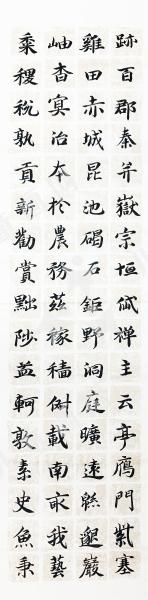 跡百郡秦并嶽宗恒岱禅主云亭鴈門紫塞
雞田赤城昆池碣石鉅野洞庭曠遠緜邈巖
岫杳冥治本於農務茲稼穡俶載南畝我藝
黍稷稅熟貢新勸賞黜陟孟軻敦素史魚秉